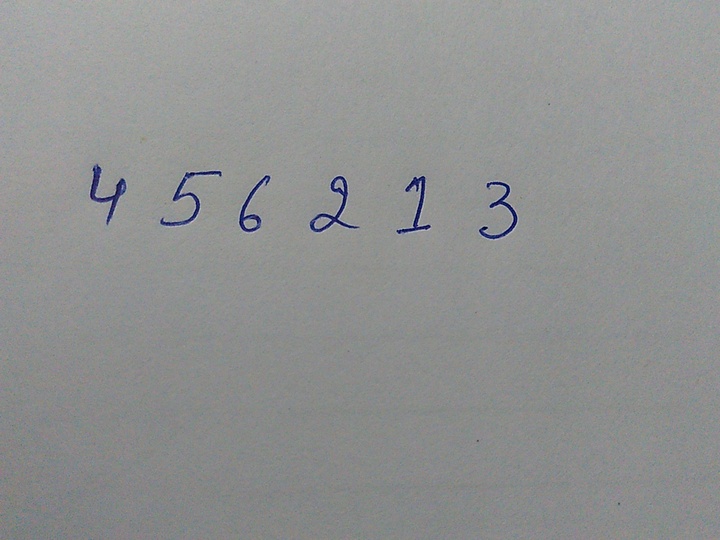 4 5 6 2 1 3